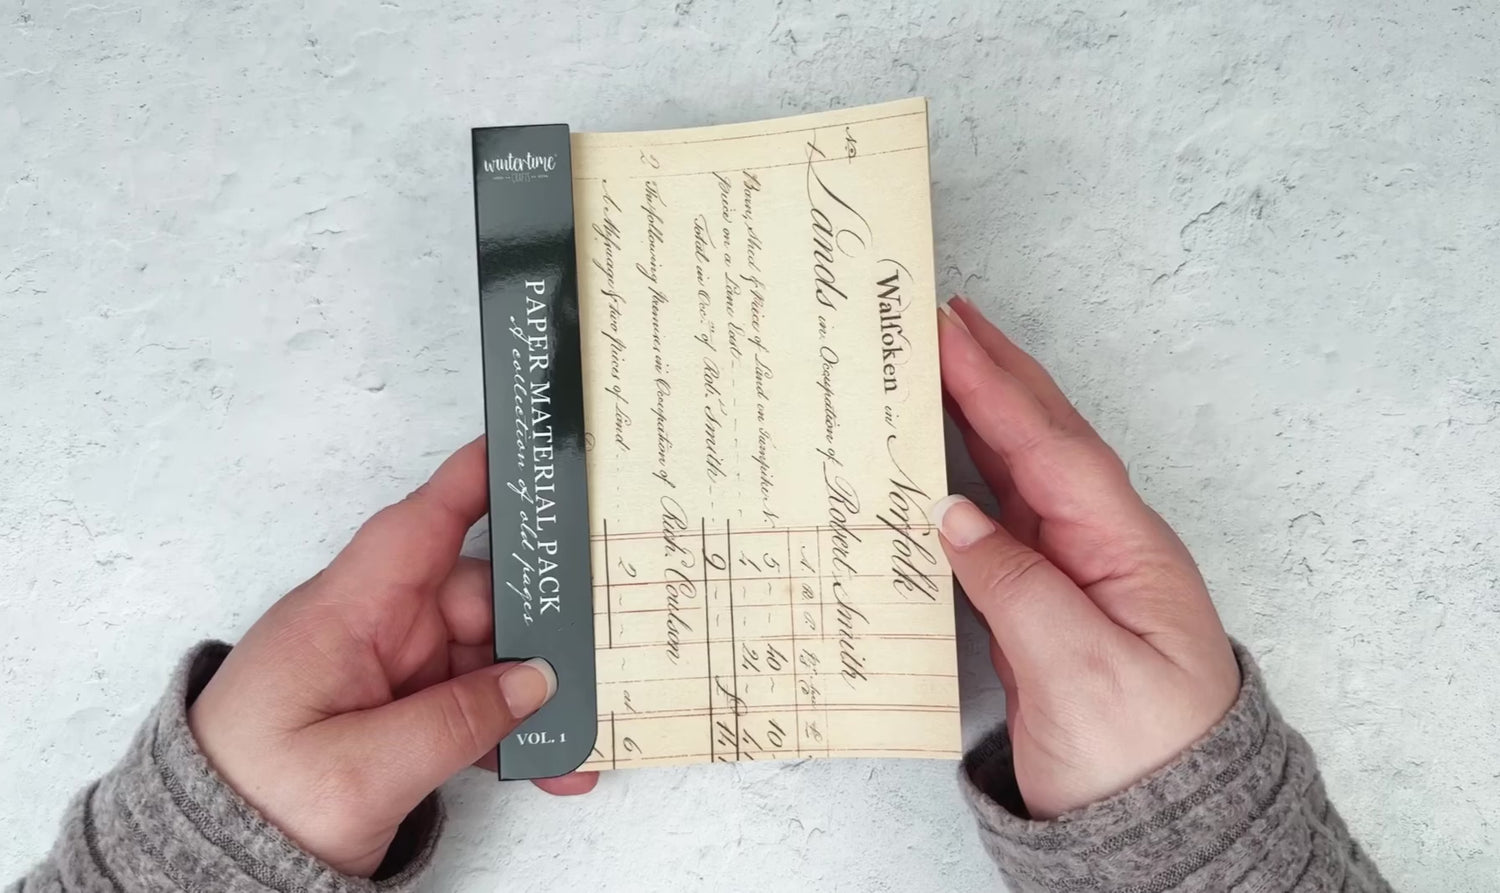 wintertime
CRAFTS
PAPER MATERIAL PACK
A collection of old pages
VOL. 1
No
Walfoken in Norfolk
1 Lands in Occupation of Robert Smith
A. R. P.
Barn, Shed & Piece of Land on Turnpike 5 ~ 40 ~ 10
Piece on a Lane East 4 ~ 24 ~
Total in Occ.n of Rob.t Smith 9 ~ ~ £
2 The following Premises in Occupation of Rich.d Coulson
A Messuage & two pieces of Land 2 ~ ~ ~ at 6